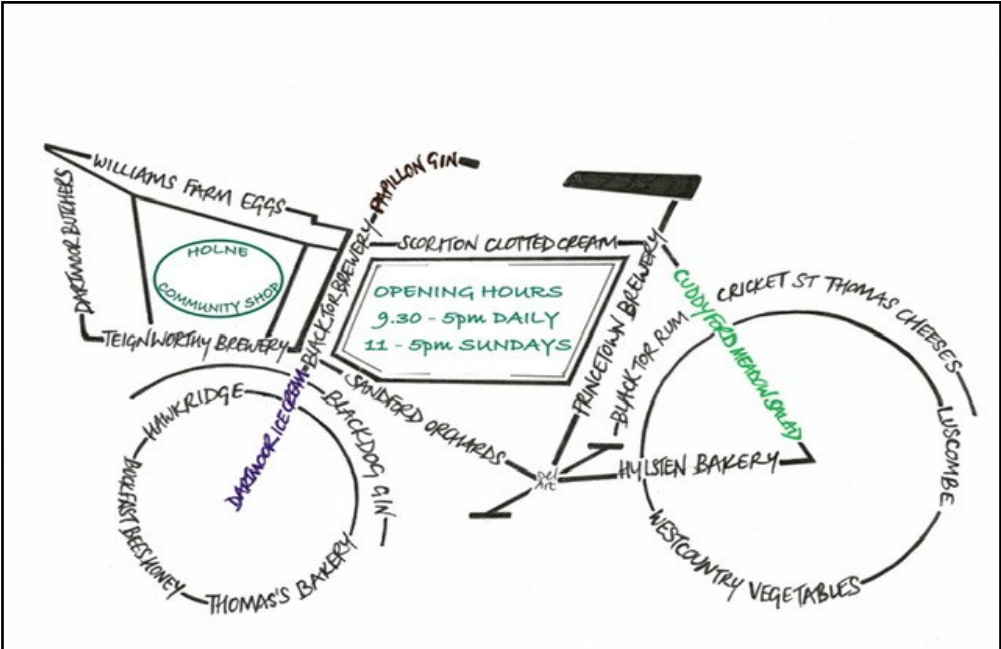 WILLIAMS FARM EGGS
DARTMOOR BUTCHERS
HOLNE
COMMUNITY SHOP
TEIGNWORTHY BREWERY
BLACK TOR BREWERY
PAPILLON GIN
SCORITON CLOTTED CREAM
OPENING HOURS
9.30 - 5pm DAILY
11 - 5pm SUNDAYS
PRINCETOWN BREWERY
BLACK TOR RUM
CUDDYFORD MEADOW SALAD
CRICKET ST THOMAS CHEESES
LUSCOMBE
WESTCOUNTRY VEGETABLES
HYLSTEN BAKERY
Del
Art
SANDFORD ORCHARDS
BLACKDOG GIN
DARTMOOR ICE CREAM
HAWKRIDGE
BUCKFAST BEES HONEY
THOMAS'S BAKERY